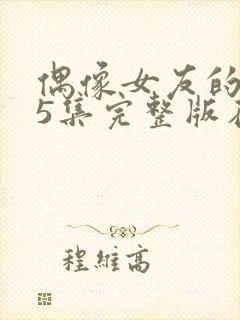 偶像女友的
5集完整版
程維高